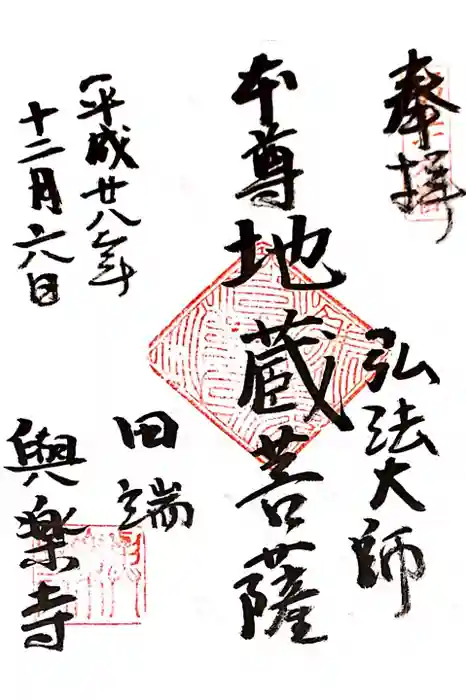 奉拝
弘法大師
本尊地蔵菩薩
平成廿八年
十二月六日
田端
興楽寺